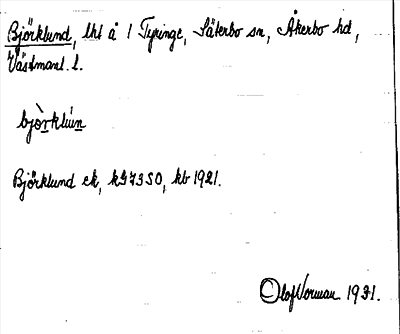 Björklund, lht å 1 Tyringe, Säterbo sn, Åkerbo hd,
Västmanl. l.
bjòrklún
Björklund ek, kG73SO, kb 1921.
Olof Norman 1931.